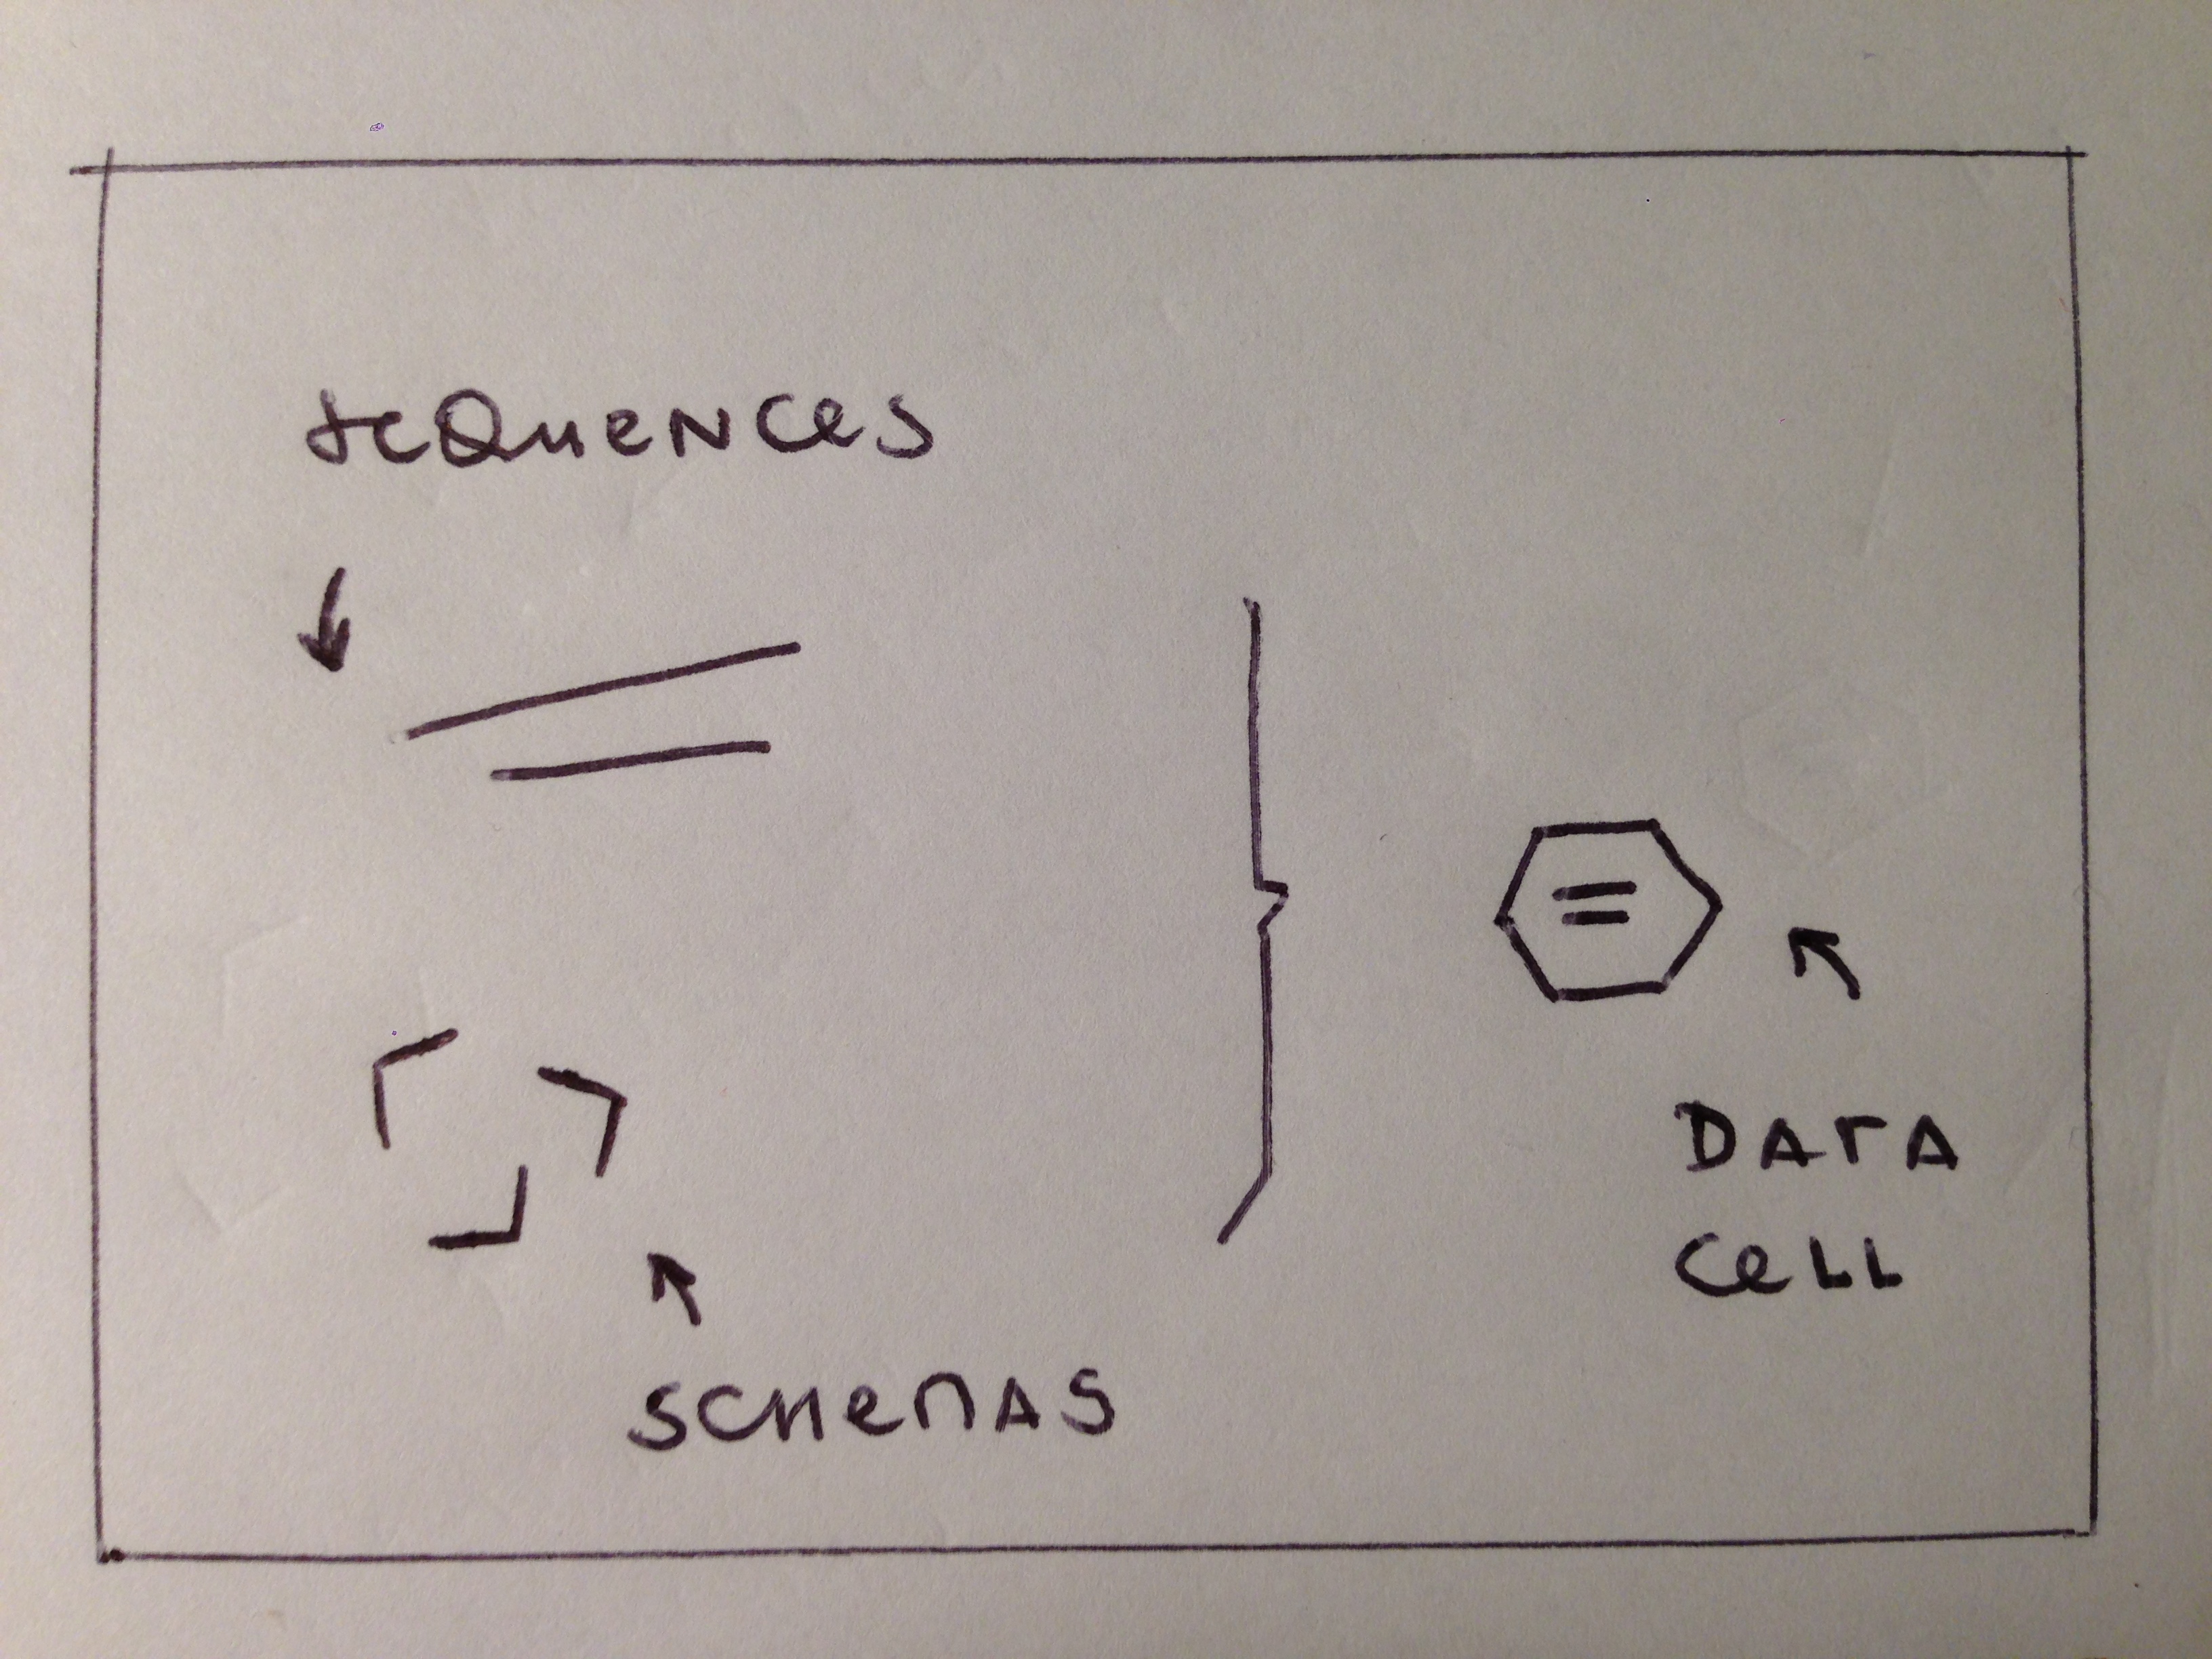 SeQueNCeS
SCHeMAS
DATA
CeLL